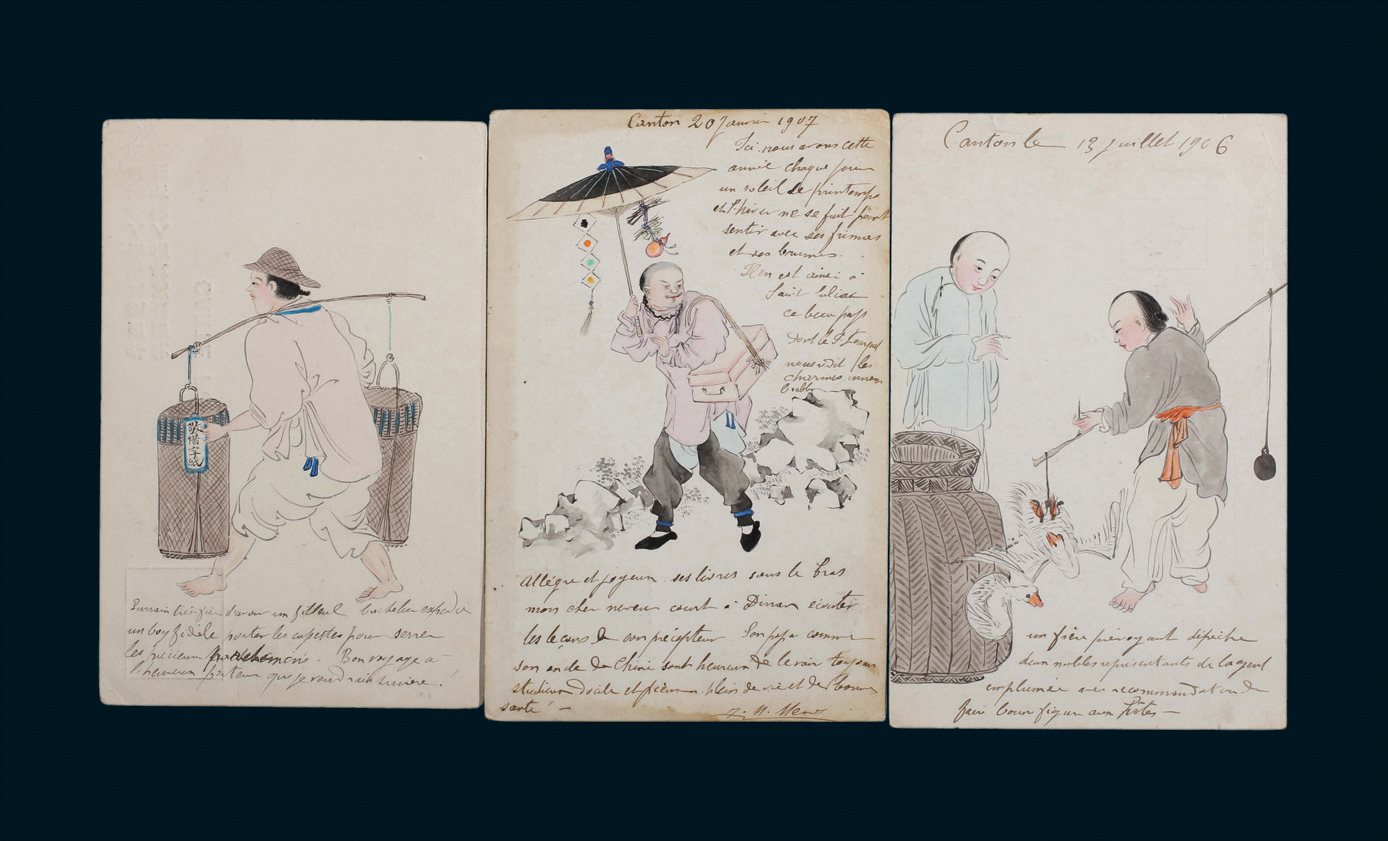 敬惜字紙
Parrain très fier d'avoir un filleul bachelier expédie
un boy fidèle porter les caisettes pour serrer
les précieux parchemins. Bon voyage à
l'heureux porteur que je voudrais suivre!
Canton 20 Janvier 1907
Ici nous avons cette
année chaque jour
un soleil de printemps
et l'hiver ne se fait point
sentir avec ses frimas
et ses brumes.
Il en est ainsi à
Saint
ce beau pays
dont le P.
nous dit les
charmes innom
brables
Allègre et joyeux ses livres sous le bras
mon cher neveu court à Dinan écouter
les leçons de son précepteur Son papa comme
son oncle de Chine sont heureux de le voir toujours
studieux docile et pieux plein de vie et de bonne
santé! —
Canton le 13 juillet 1906
un frère prévoyant dépêche
deux nobles représentants de la gent
emplumée avec recommandation de
faire bonne figure aux hôtes —